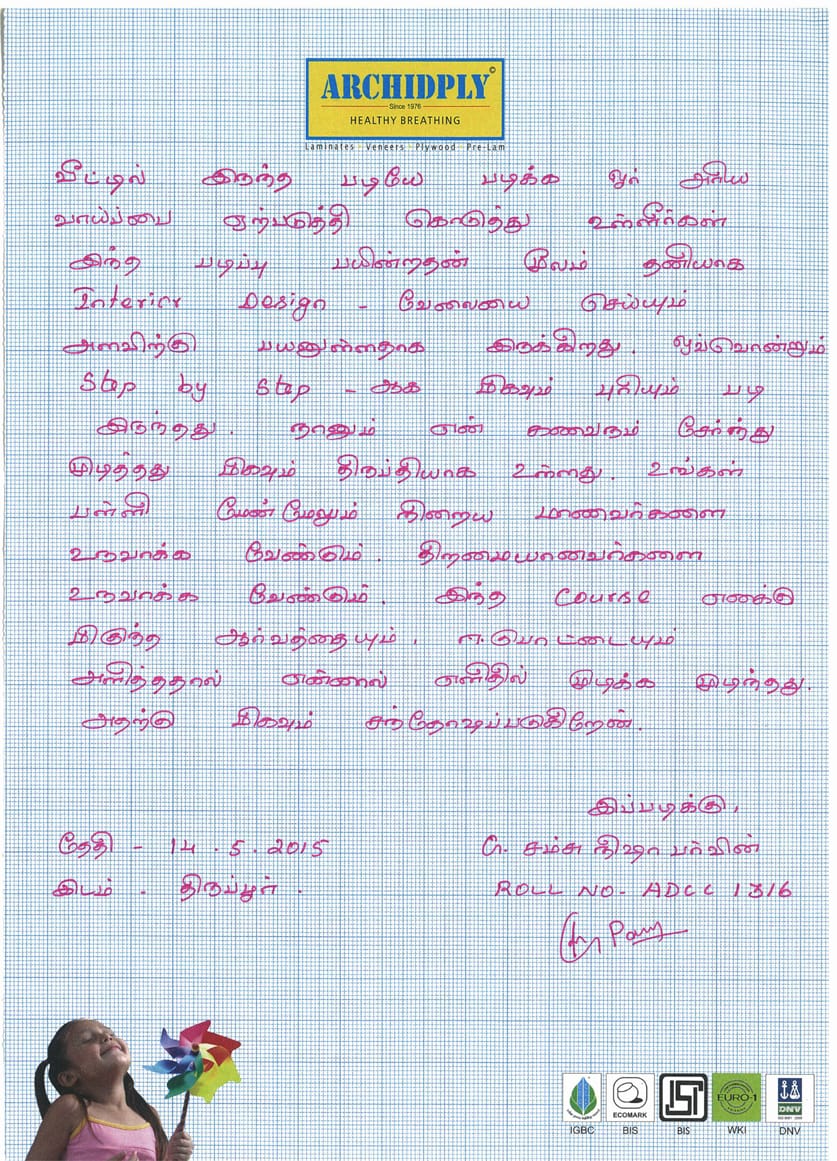 ARCHIDPLY©
Since 1976
HEALTHY BREATHING
Laminates · Veneers · Plywood · Pre-Lam
வீட்டில் இருந்த படியே படிக்க ஓர் அரிய
வாய்ப்பை ஏற்படுத்தி கொடுத்து உள்ளீர்கள்
இந்த படிப்பு பயின்றதன் மூலம் தனியாக
Interior Design - வேலையை செய்யும்
அளவிற்கு பயனுள்ளதாக இருக்கிறது. ஒவ்வொன்றும்
Step by Step - ஆக மிகவும் புரியும் படி
இருந்தது. நானும் என் கணவரும் சேர்ந்து
முடித்தது மிகவும் திருப்தியாக உள்ளது. உங்கள்
பள்ளி மேன்மேலும் நிறைய மாணவர்களை
உருவாக்க வேண்டும். திறமையானவர்களை
உருவாக்க வேண்டும். இந்த Course எனக்கு
மிகுந்த ஆர்வத்தையும்,
அளித்ததால் என்னால் எளிதில் முடிக்க முடிந்தது.
அதற்கு மிகவும் சந்தோஷப்படுகிறேன்.
இப்படிக்கு,
தேதி - 14.5.2015
சம்சு நிஷா பர்வின்
இடம் - திருப்பூர்.
ROLL NO- ADCC 1316
IGBC
ECOMARK
BIS
BIS
EURO-1
WKI
DNV
DNV